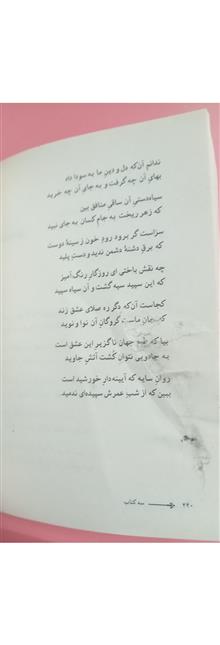 ندانم آن‌که دل و دینِ ما به سودا داد
بهای آن چه گرفت و به جای آن چه خرید
سیاه‌دستیِ آن ساقیِ منافق بین
که زهر ریخت به جامِ کسان به جای نبید
سزاست گر برود رودِ خون ز سینهٔ دوست
که برقِ دشنهٔ دشمن ندید و دستِ پلید
چه نقش باختی ای روزگارِ رنگ‌آمیز
که این سپید سیه گشت و آن سیاه سپید
کجاست آن‌که دگرره صلای عشق زند
که جانِ ماست گروگانِ آن نوا و نوید
بیا که جهان ناگزیرِ این عشق است
به جادویی نتوان کُشت آتشِ جاوید
روانِ سایه که آیینه‌دارِ خورشید است
ببین که از شبِ عمرش سپیده‌ای ندمید.
۲۲۰ سه کتاب